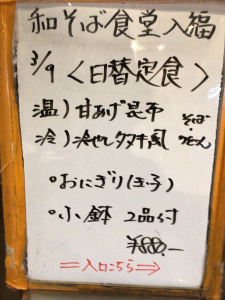 和そば食堂入福
3/9 <日替定食>
温) 甘あげ昆布 そば
冷) 冷やしタヌキ風 ・うどん
○おにぎり(玉子)
○小鉢 2品付
¥880.—
⇒入口こちら⇒